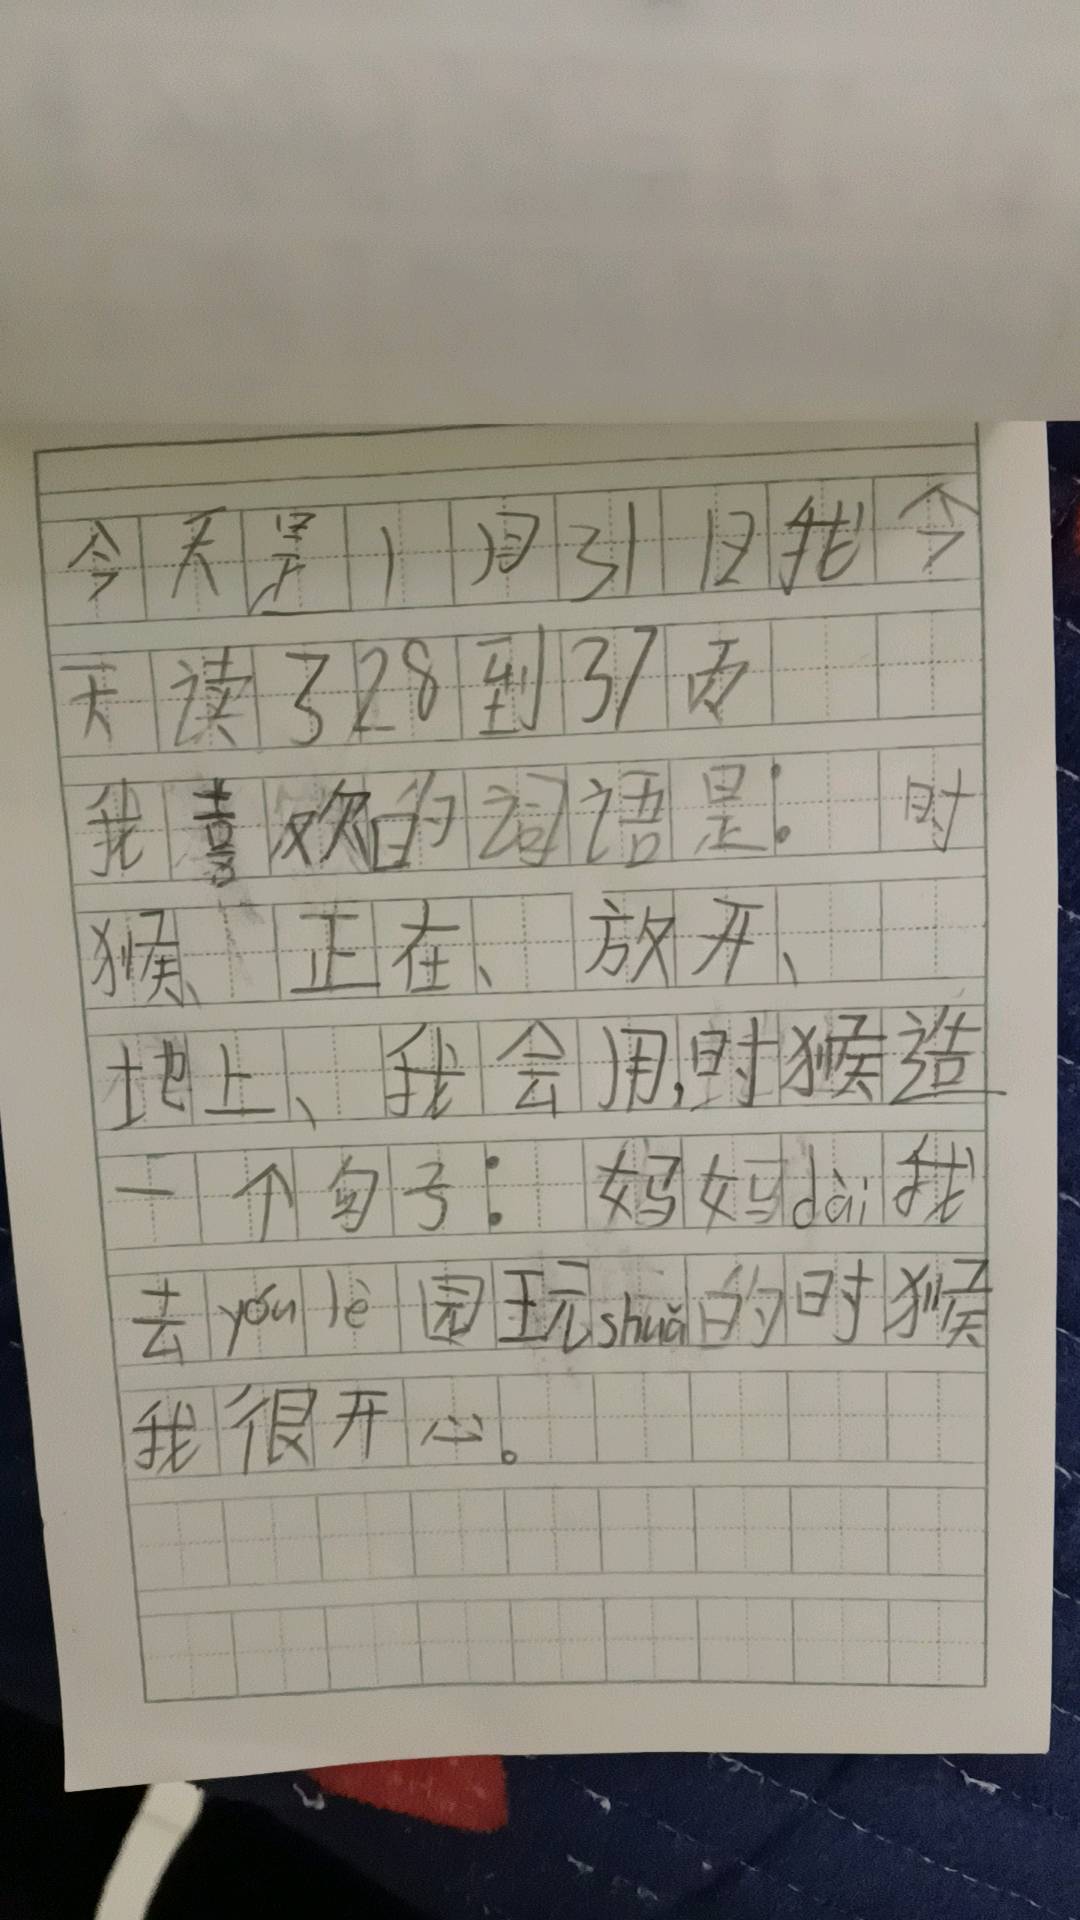 今天是1月31日我今
天读了28到37页
我喜欢的词语是：时
猴、正在、放开、
地上、我会用,时猴造
一个句子：妈妈dài我
去yóu lè园玩shuǎ的时猴
我很开心。